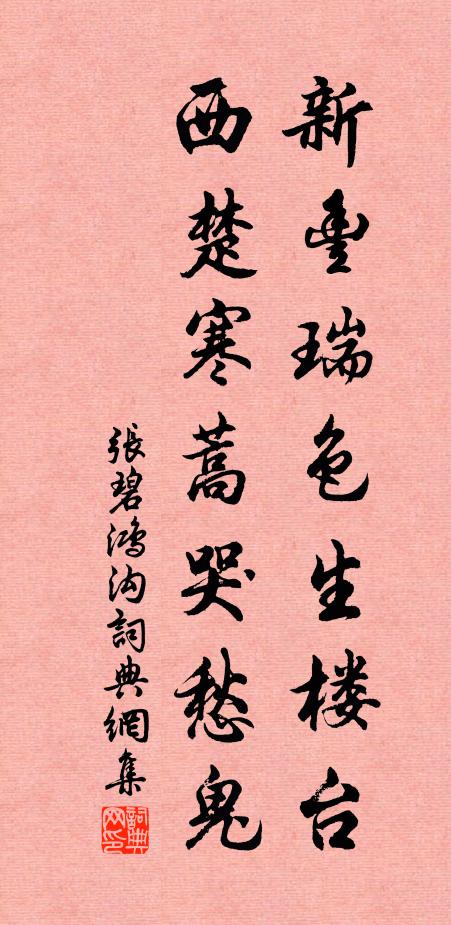 新豊瑞色生楼台
西楚寒蒿哭愁鬼
張碧鴻沟詞典網集
詞典网印